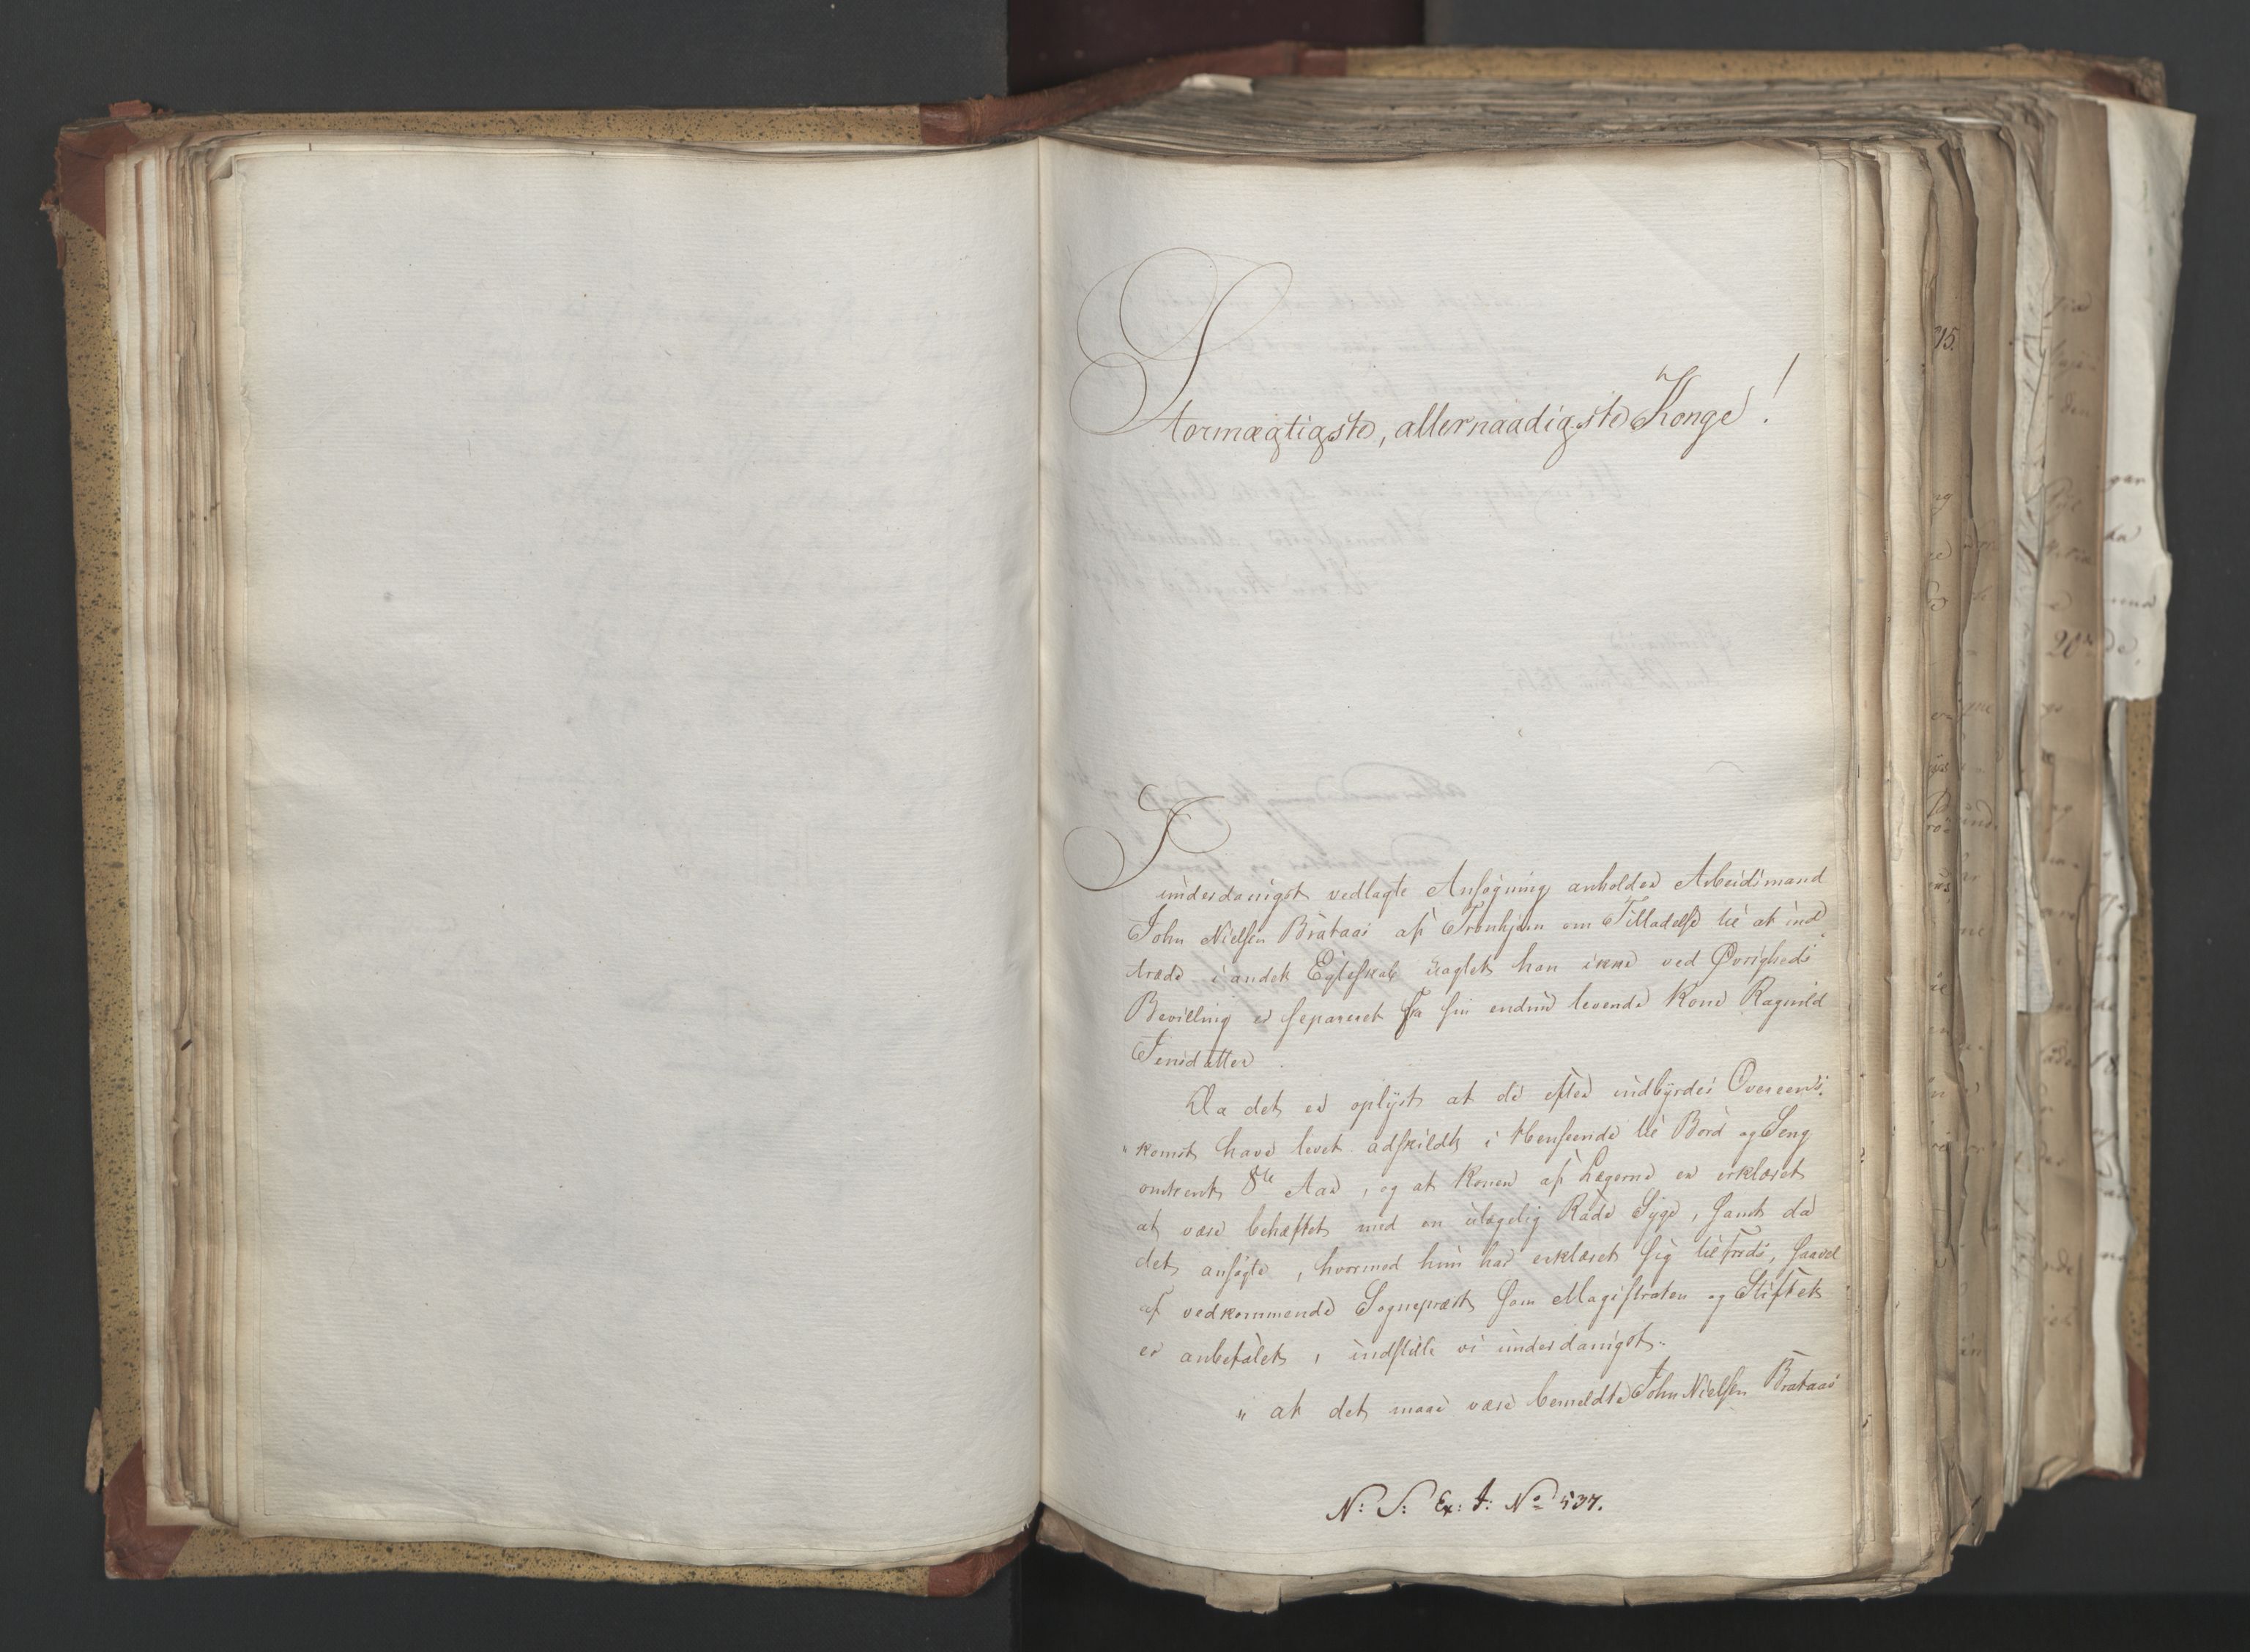 Stormægtigste, allernaadigste Konge!
I
underdanigst vedlagte Ansøgning anholder Arbeidsmand
John Nielsen Brataas af Tronhjem om Tilladelse til at ind
træde i andet Egteskab uagtet han ikke ved Øvrigheds
Bevilling er separeret fra sin endnu levende Kone Ragnild
Jensdatter.
Da det er oplyst at de efter indbyrdes Overeens-
komst have levet adskildte i Henseende til Bord og Seng
omtrent 8te Aar, og at Konen af Lægerne er erklæret
at være behæftet med en ulægelig Rade Syge, samt da
det ansøgte, hvormed hun har erklæret sig tilfreds, saavel
af vedkommende Sognepræst som Magistraten og Stiftet
er anbefalet, indstille vi underdanigst:
" at det maae være bemeldte John Nielsen Brataas
N: S: Ex: J: No 537.
15.
20de